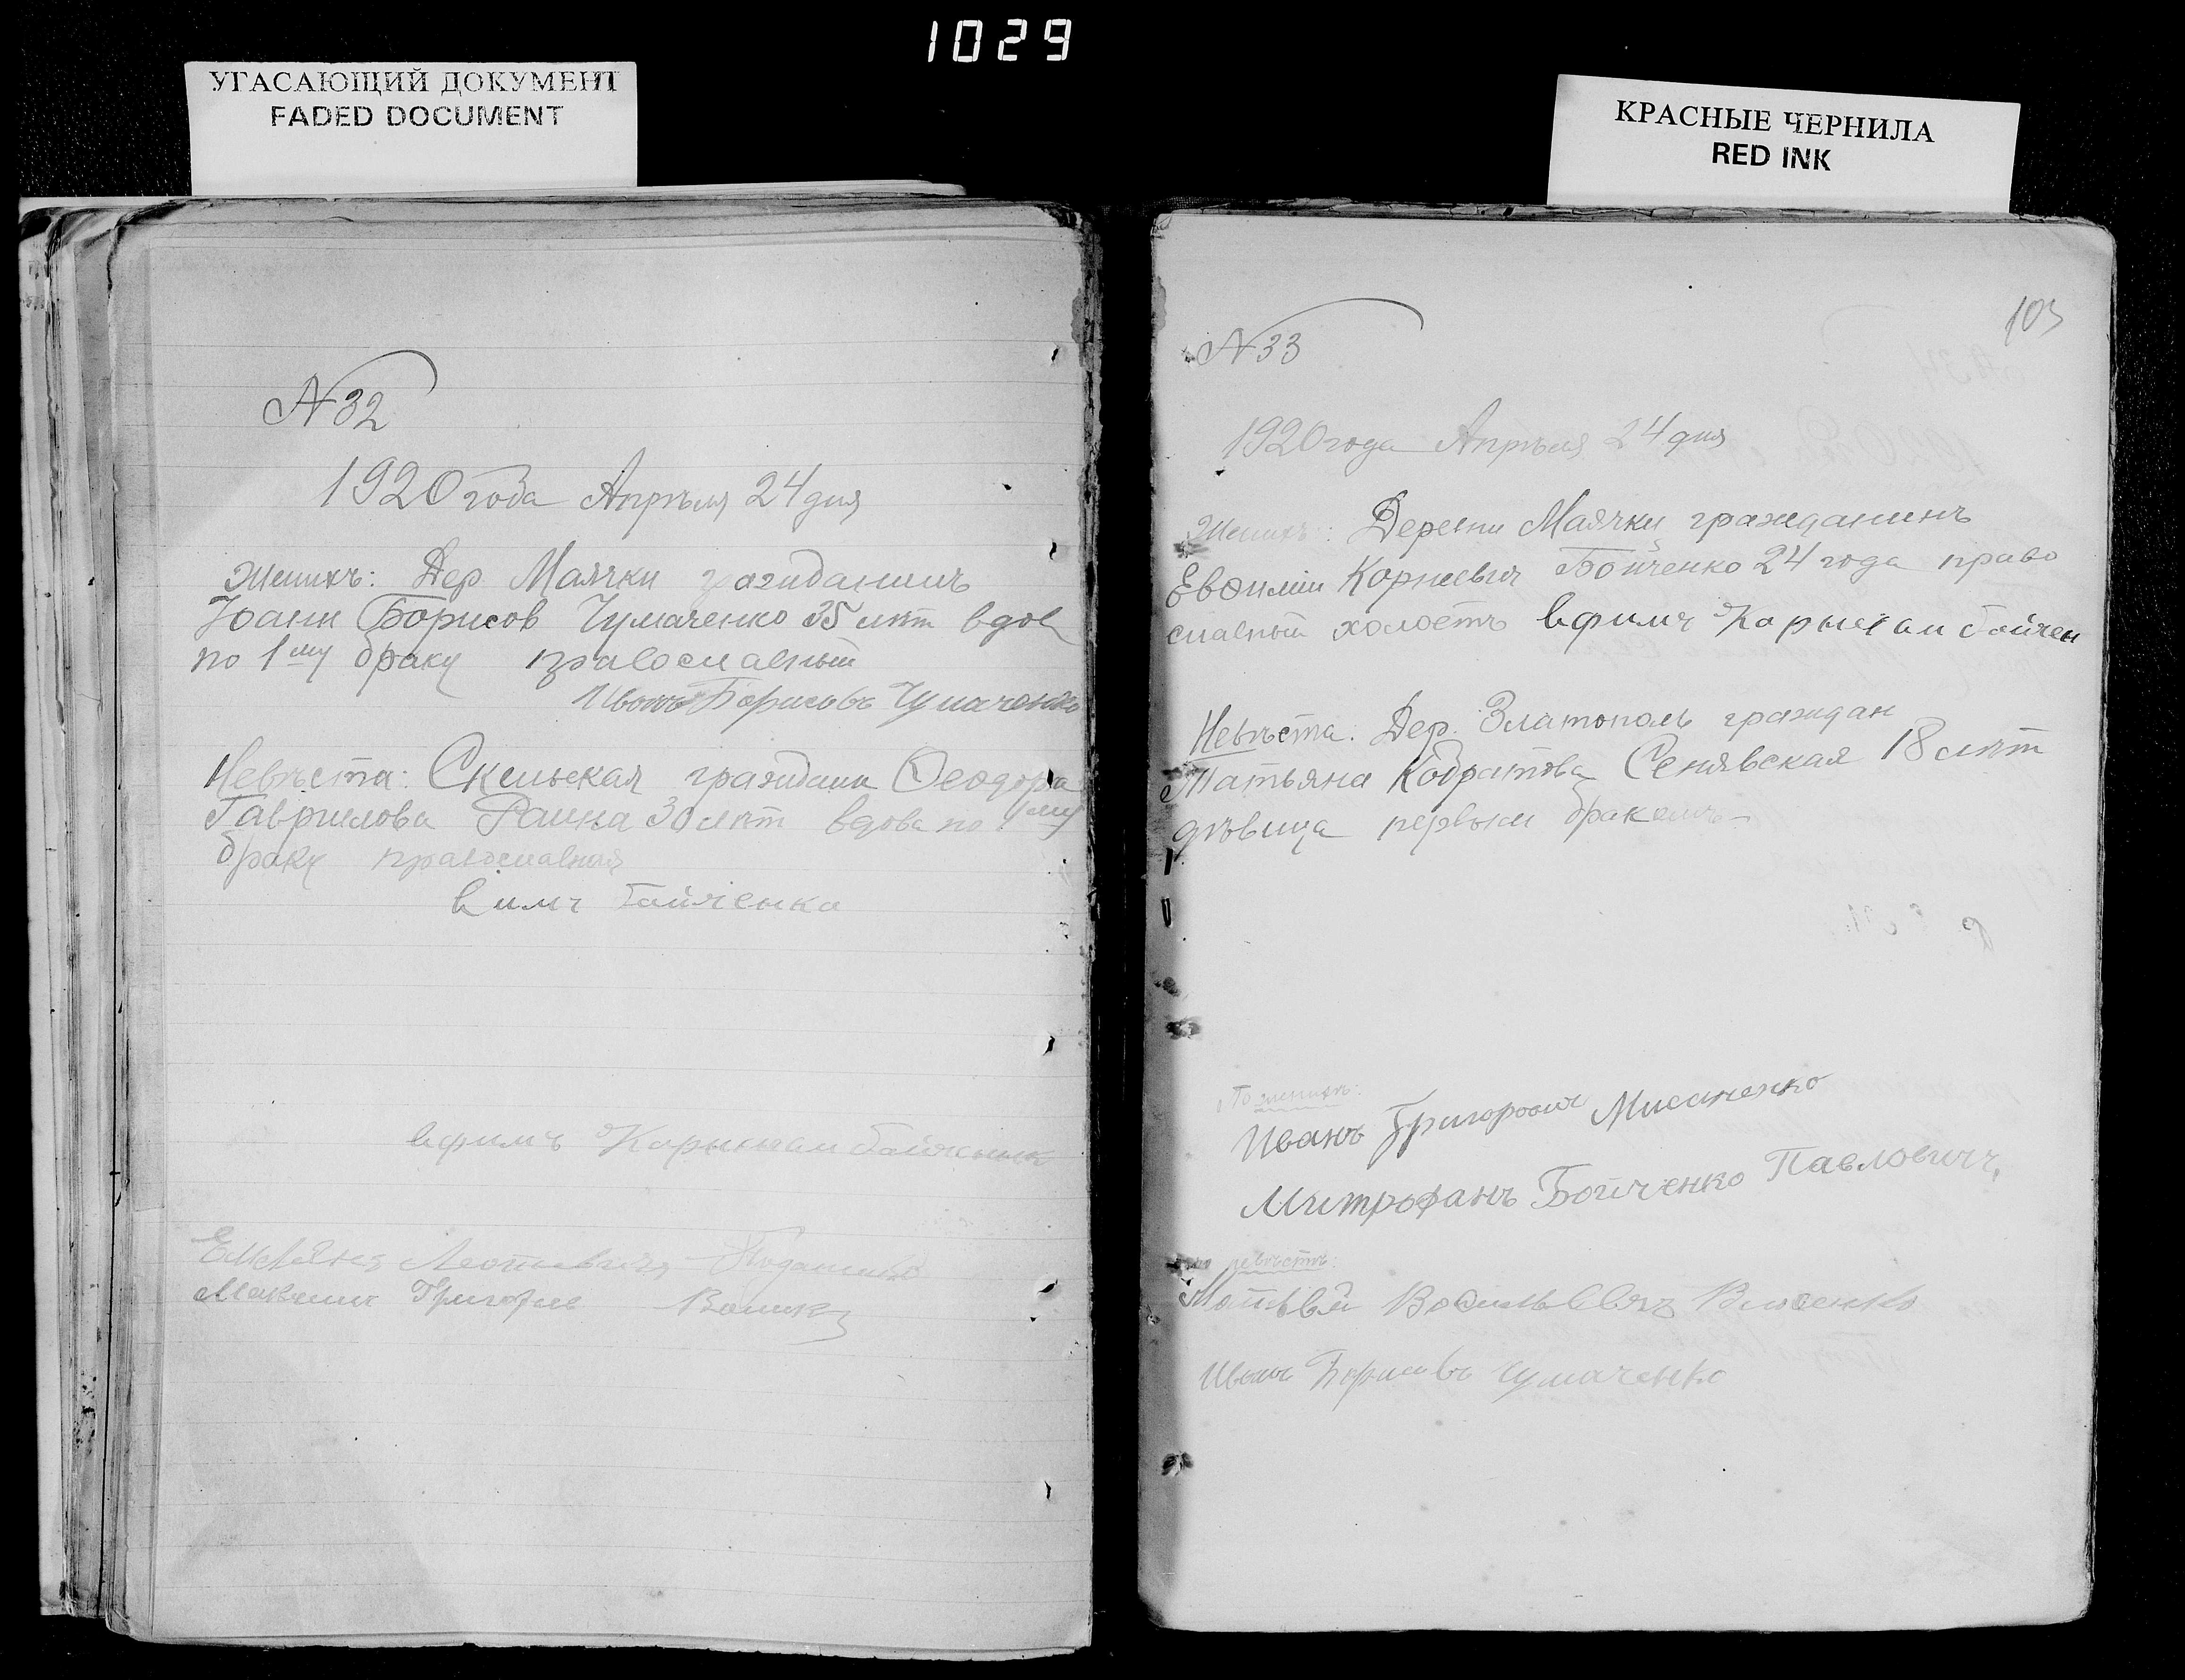 1029
УГАСАЮЩИЙ ДОКУМЕНТ
FADED DOCUMENT
КРАСНЫЕ ЧЕРНИЛА
RED INK
N 32
1920 года Апрѣля 24 дня
Женихъ: Дер. Маячки гражданинъ
Іоанн Борисов Чумаченко 35 лѣт вдов
по 1му браку православный
Иванъ Борисовъ Чумаченко
Невѣста: Скельская граждани Ѳеодора
Гаврилова 30 лѣт вдова по 1му
браку православная
вфимъ Карынеам байченк
Григорие
103
N 33
1920 года Апрѣля 24 дня
Женихъ: Деревни Маячки гражданинъ
Евѳимій Корнеевич Бойченко 24 года право
славный холостъ вфимъ Карынеам байчен
Невѣста: Дер. Златополь граждан
Татьяна Кодратова Сенявская 18 лѣт
дѣвица первым бракомъ
По женихѣ:
Иванъ Григорович
Митрофанъ Бойченко Павловичъ
по невѣстѣ:
Матвѣй Власенко
Иванъ Борисовъ Чумаченко